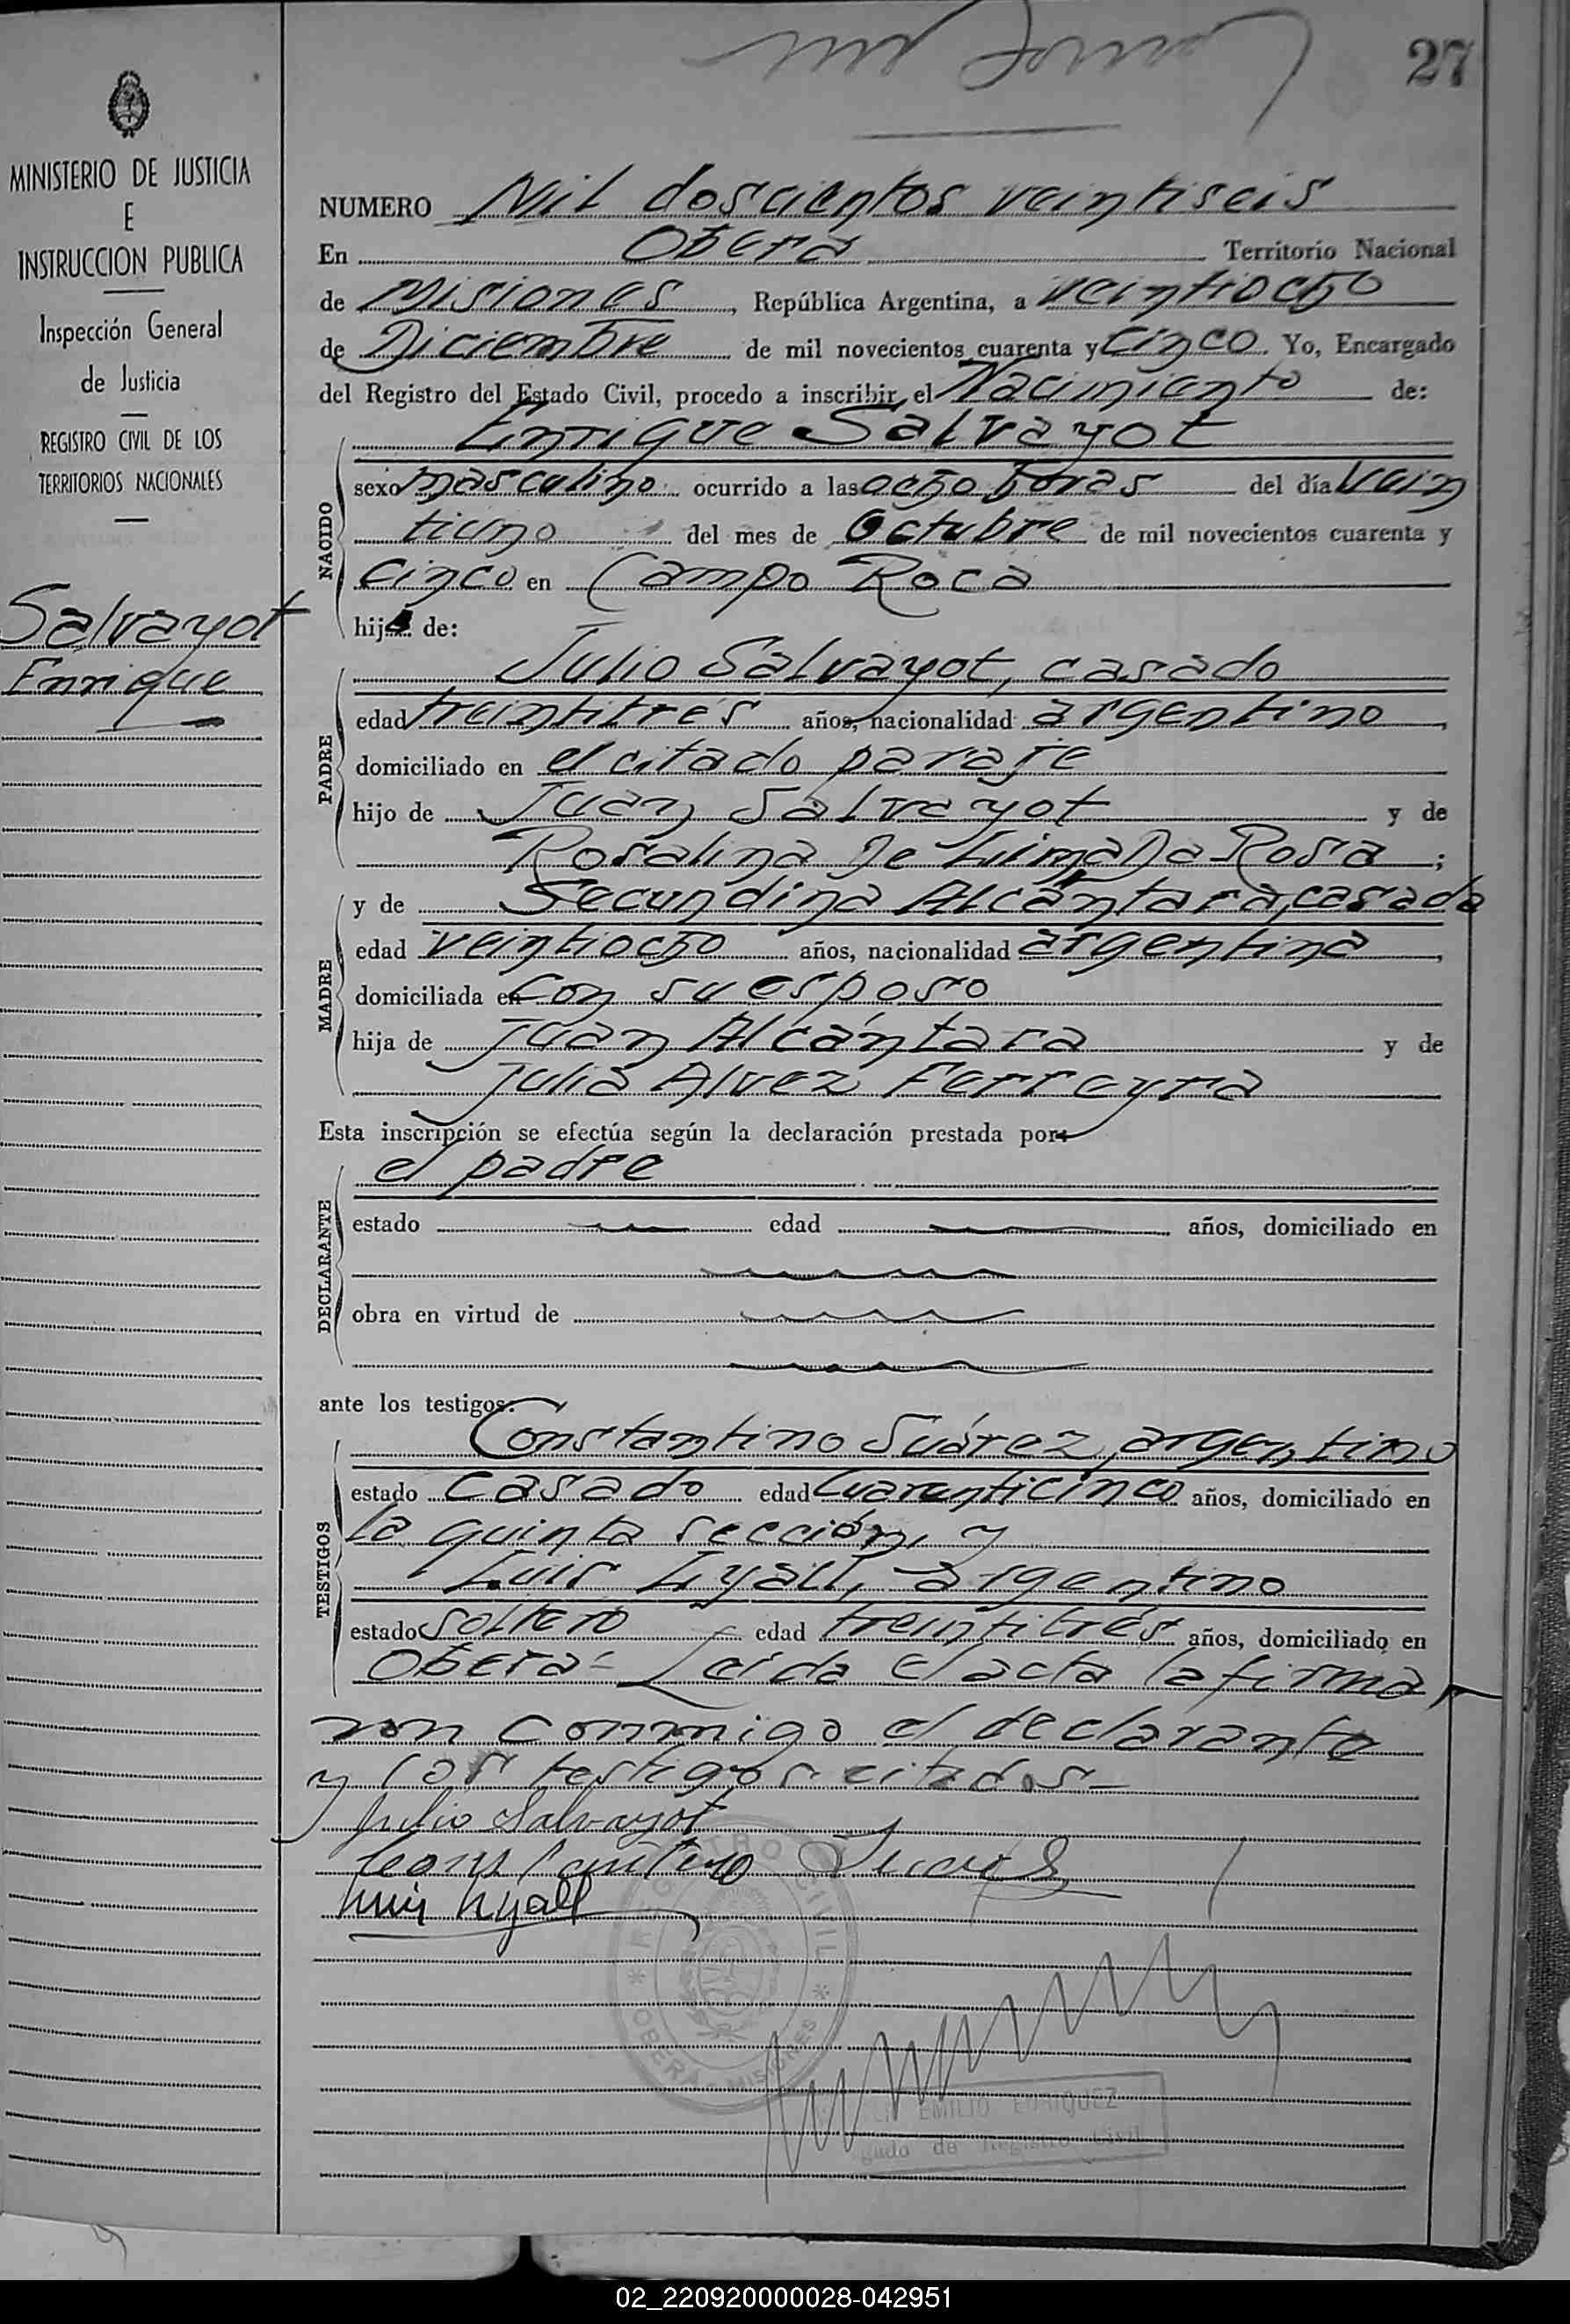 27
MINISTERIO DE JUSTICIA
E
INSTRUCCION PUBLICA
Inspección General
de Justicia
REGISTRO CIVIL DE LOS
TERRITORIOS NACIONALES
Salvayot
Enrique
NUMERO Mil doscientos veintiseis
En Oberá Territorio Nacional
de Misiones, República Argentina, a veintiocho
de Diciembre de mil novecientos cuarenta y cinco. Yo, Encargado
del Registro del Estado Civil, procedo a inscribir el Nacimiento de:
NACIDO
Enrique Salvayot
sexo masculino ocurrido a las ocho horas del día vein
tiuno del mes de Octubre de mil novecientos cuarenta y
cinco en Campo Roca
hijo de:
PADRE
Julio Salvayot, casado
edad treintitrés años, nacionalidad argentino,
domiciliado en el citado paraje
hijo de Juan Salvayot y de
Rosalina De Lima Da Rosa;
MADRE
y de Secundina Alcántara, casada
edad veintiocho años, nacionalidad argentina,
domiciliada en con su esposo
hija de Juan Alcántara y de
Julia Alvez Ferreyra
Esta inscripción se efectúa según la declaración prestada por:
DECLARANTE
el padre
estado edad años, domiciliado en
obra en virtud de
ante los testigos:
TESTIGOS
Constantino Suárez, argentino
estado casado edad cuarenticinco años, domiciliado en
la quinta sección, y
Luis Lyall, argentino
estado soltero edad treintitrés años, domiciliado en
Oberá- Leída el acta la firma
ron conmigo el declarante
y los testigos citados-
Julio Salvayot
Constantino Suares
Luis Lyall
REGISTRO CIVIL
OBERÁ - MISIONES
EMILIO ENRIQUEZ
gado de Registro Civil
02_220920000028-042951